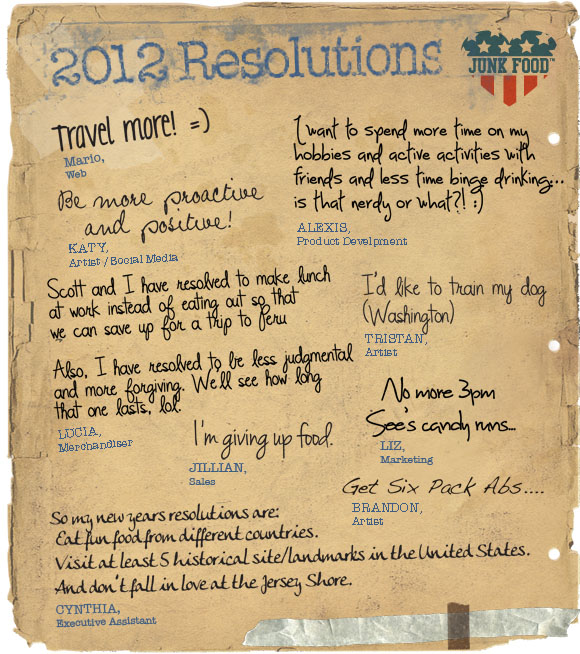 2012 Resolutions
JUNK FOOD™
Travel more! =)
Mario,
Web
I want to spend more time on my
hobbies and active activities with
friends and less time binge drinking...
is that nerdy or what?! :)
ALEXIS,
Product Develpment
Be more proactive
and positive!
KATY,
Artist / Social Media
Scott and I have resolved to make lunch
at work instead of eating out so that
we can save up for a trip to Peru
Also, I have resolved to be less judgmental
and more forgiving. We'll see how long
that one lasts, lol.
LUCIA,
Merchandiser
I'd like to train my dog
(Washington)
TRISTAN,
Artist
No more 3pm
See's candy runs...
LIZ,
Marketing
I'm giving up food.
JILLIAN,
Sales
Get Six Pack Abs....
BRANDON,
Artist
So my new years resolutions are:
Eat fun food from different countries.
Visit at least 5 historical site/landmarks in the United States.
And don't fall in love at the Jersey Shore.
CYNTHIA,
Executive Assistant